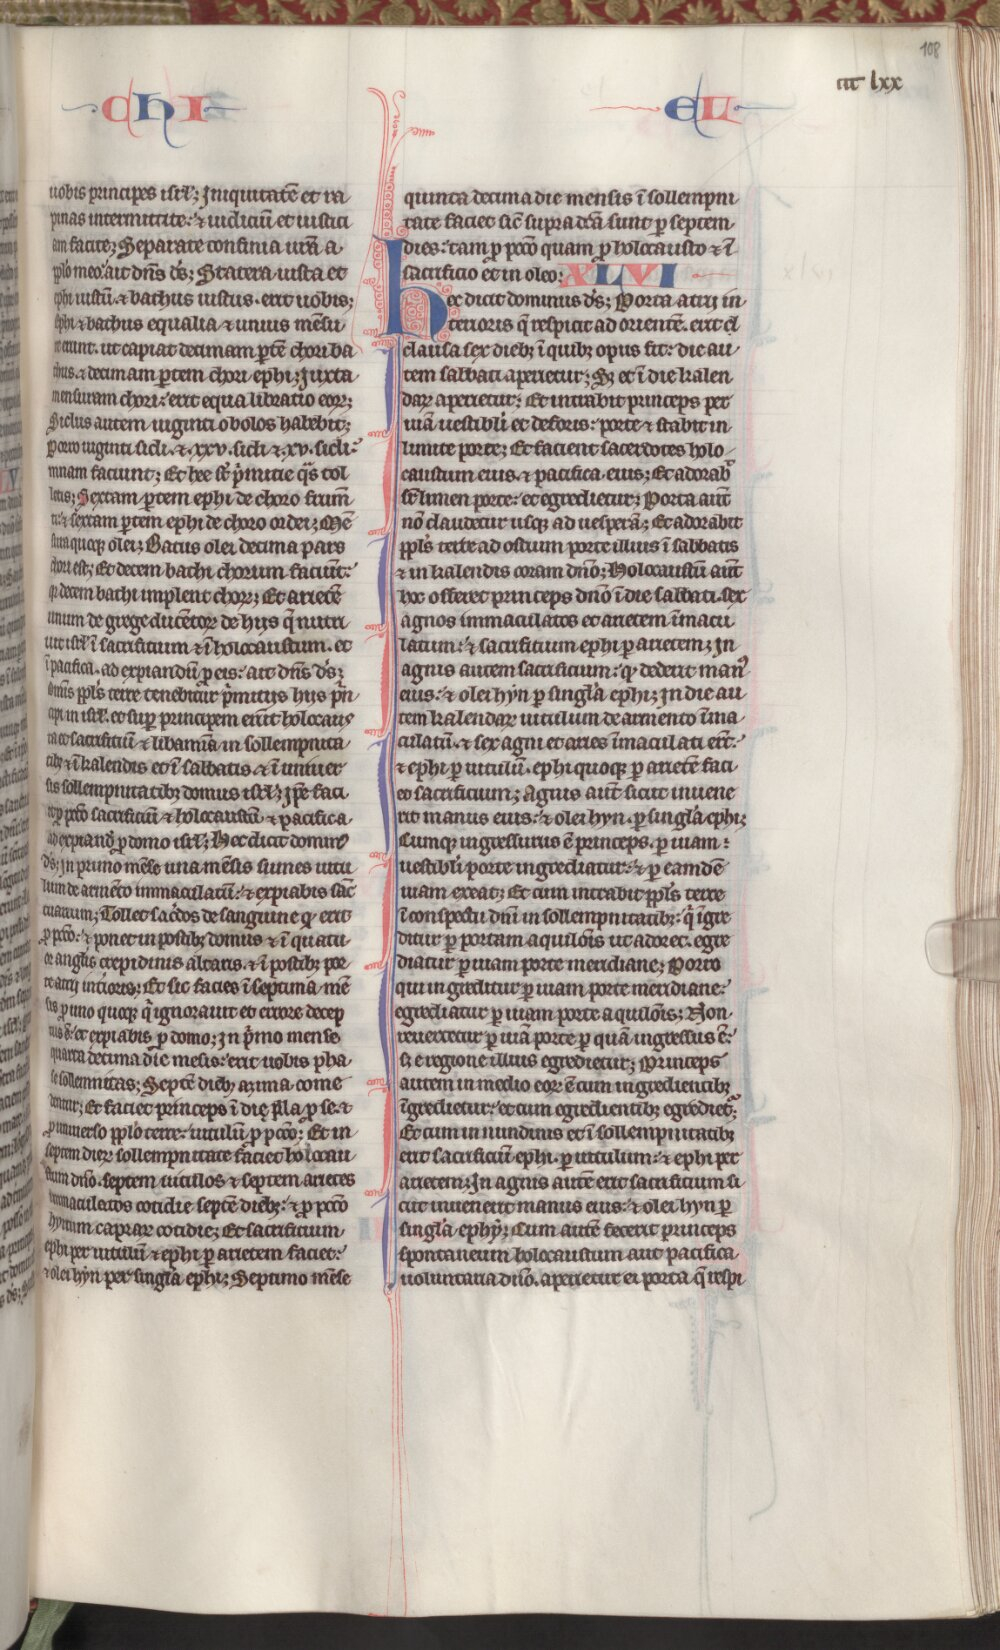 108
CHI EL
lxx
uobis principes isrl'; Iniquitatē et ra
pinas intermittite: ⁊ iudiciū et iustici
am facite; Separate confinia ur̄a a
pp̄lo meo: ait dn̄s ds̄; Statera iusta et
ephi iustū ⁊ bathus iustus erit uobis;
ephi ⁊ bathus equalia ⁊ unius mēsu
re erunt. ut capiat decimam ꝑtē chori ba
thus. ⁊ decimam ꝑtem chori ephi; Iuxta
mensuram chori: erit equa libratio eoꝝ;
Siclus autem uiginti obolos habebit;
Porro uiginti sicli. ⁊ xxv. sicli ⁊ xv. sicli:
mnam faciunt; Et hee st̄ p̄mitie q̄s tol
letis; Sextam ꝑtem ephi de choro frum̄
ti: ⁊ sextam ꝑtem ephi de choro ordei; Mē
sura quoqꝫ olei; Batus olei decima pars
chori est; Et decem bathi chorum faciūt:
qꝛ decem bathi implent choꝝ; Et arietē
unum de grege ducētoꝝ de hijs q̄ nutri
unt isrl' ī sacrificium ⁊ ī holocaustum. et
ī pacifica. ad expiandū ꝑ eis: ait dn̄s ds̄;
Om̄is pp̄ls terre tenebitur p̄mitijs hijs p̄n
cipi in isrl'. et sup̄ principem erūt holocaus
ta et sacrificiū ⁊ libamīa in sollempnita
tibꝫ ⁊ ī kalendis et ī sabbatis. ⁊ ī uniuer
sis sollempnitatibꝫ domus isrl'; Ip̄e faci
et ꝓ pcc̄o sacrificiū ⁊ holocaustū ⁊ pacifica
ad expiand̄ ꝓ domo isrl'; Hec dicit dominus
ds̄; In primo mēse una mēsis sumes uitu
lum de armēto immaculatū: ⁊ expiabis sāc
tuarium; Tollet sac̄dos de sanguine qd̄ erit
ꝓ pcc̄o: ⁊ ponet in postibꝫ domus ⁊ ī quatu
or angl̄is crepidinis altaris. ⁊ ī postibꝫ por
te atrij int̄ioris; Et sic facies ī septima mē
sis ꝓ uno quoqꝫ q̄ ignorauit et errore decep
tus ē: et expiabis ꝓ domo; In p̄mo mense
quarta decima die mēsis: erit uobis pha
se sollemnitas; Septē diebꝫ azima come
dentur; Et faciet princeps ī die illa ꝓ se. ⁊
ꝓ uniuerso pp̄lo terre: uitulū ꝓ pcc̄o; Et in
septem dieꝝ sollempnitate faciet holocau
stum dn̄o. septem uitulos ⁊ septem arietes
immaculatos cotidie septē diebꝫ: ⁊ ꝓ pcc̄o
hyrcum capraꝝ cotidie; Et sacrificium
ephi per uitulū ⁊ ephi ꝑ arietem faciet:
⁊ olei hȳn per singl̄a ephi; Septimo mēse
quinta decima die mensis ī sollempni
tate faciet sic̄ supra dc̄a sunt ꝑ septem
dies: tam ꝓ pcc̄o quam ꝓ holocausto ⁊ ī
sacrificio et in oleo; XLVI
Hec dicit dominus ds̄; Porta atrij in
terioris q̄ respicit ad orientē. erit
clausa sex diebꝫ ī quibꝫ opus fit: die au
tem sabbati aperietur; Sꝫ et ī die kalen
daꝝ aperietur; Et intrabit princeps per
uiā uestibuli et deforis: porte ⁊ stabit in
limite porte; Et facient sacerdotes holo
caustum eius. ⁊ pacifica eius; Et adorab̄
sr̄ limen porte: et egredietur; Porta aut̄
nō claudetur usqꝫ ad uesperā; Et adorabit
pp̄ls terre ad ostium porte illius ī sabbatis
⁊ in kalendis coram dn̄o; Holocaustū aut̄
hoc offeret princeps dn̄o ī die sabbati. sex
agnos immaculatos et arietem īmacu
latum: ⁊ sacrificium ephi ꝑ arietem; In
agnis autem sacrificium: qd̄ dederit manꝰ
eius: ⁊ olei hȳn ꝑ singl̄a ephi; In die au
tem kalendaꝝ uitulum de armento īma
culatū. ⁊ sex agni et aries īmaculati er̄t:
⁊ ephi ꝑ uitulū. ephi quoqꝫ ꝑ arietē faci
et sacrificium; Agnis aut̄ sicut inuene
rit manus eius: ⁊ olei hȳn. ꝑ singl̄a ephi;
Cumqꝫ ingressurus ē princeps. ꝑ uiam:
uestibuli porte ingrediatur: ⁊ ꝑ eamdē
uiam exeat; Et cum intrabit pp̄ls terre
ī conspectu dn̄i in sollempnitatibꝫ: q̄ igre
ditur ꝑ portam aquilōis ut adoret. egre
diatur ꝑ uiam porte meridiane; Porro
qui ingreditur ꝑ uiam porte meridiane:
egrediatur ꝑ uiam porte aquilōis; Non
reuertetur ꝑ uiā porte ꝑ quā ingressus ē:
sꝫ e regione illius egredietur; Princeps
autem in medio eoꝝ ē cum ingredientibꝫ
īgredietur: et cum egredientibꝫ egrediet̄;
Et cum in nundinis et ī sollempnitatibꝫ
erit sacrificiū ephi. ꝑ uitulum: ⁊ ephi per
arietem; In agnis autē erit sacrificium si
cut inuenerit manus eius: ⁊ olei hȳn ꝑ
singl̄a ephy; Cum autē fecerit princeps
spontaneum holocaustum aut pacifica
uoluntaria dn̄o. aperietur ei porta q̄ respi